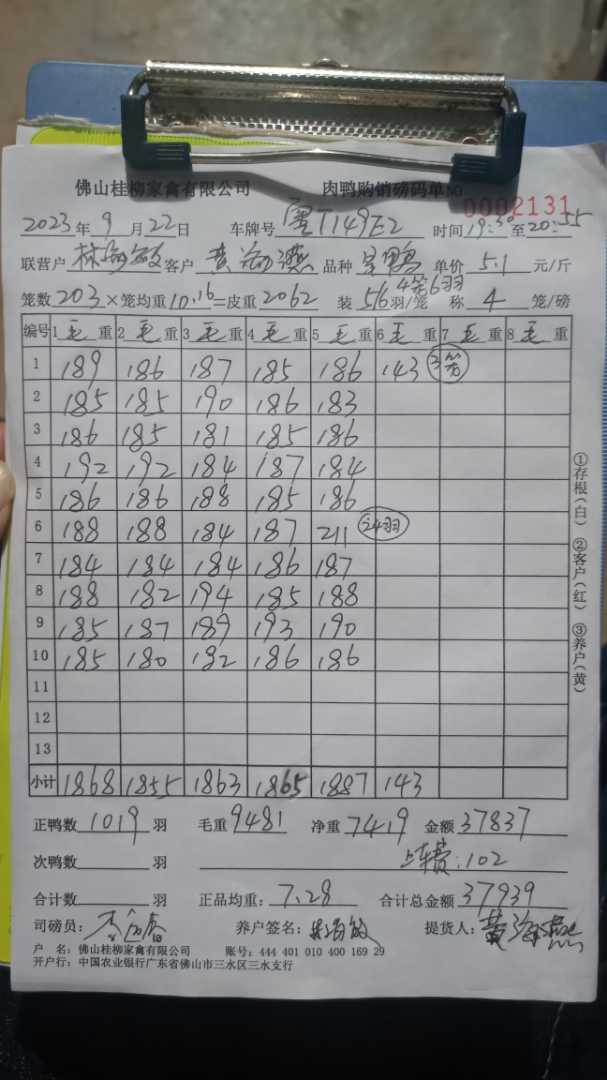 佛山桂柳家禽有限公司 肉鸭购销磅码单NO 0002131
2023年9月22日 车牌号 粤T149E2 时间19:30至20:55
联营户 林海敏 客户 品种 单价 5.1 元/斤
笼数203×笼均重10.16=皮重2062 装 5/6羽/笼 4笼6羽 称 4 笼/磅
编号 1 毛 重 2 毛 重 3 毛 重 4 毛 重 5 毛 重 6 毛 重 7 毛 重 8 毛 重
1 189 186 187 185 186 143 3笼
2 185 185 190 186 183
3 186 185 181 185 186
4 192 192 184 187 184
5 186 186 188 185 186
6 188 188 184 187 211 24羽
7 184 184 184 186 187
8 188 182 194 185 188
9 185 187 189 193 190
10 185 180 182 186 186
11
12
13
小计 1868 1855 1863 1865 1887 143
正鸭数 1019 羽 毛重 9481 净重 7419 金额 37837
次鸭数 羽 上车费:102
合计数 羽 正品均重: 7.28 合计总金额 37939
司磅员: 养户签名: 林海敏 提货人:
户 名:佛山桂柳家禽有限公司 账号:444 401 010 400 169 29
开户行:中国农业银行广东省佛山市三水区三水支行
①存根(白) ②客户(红) ③养户(黄)